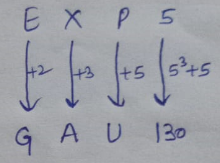 E X P 5
+2 +3 +5 5³+5
G A U 130